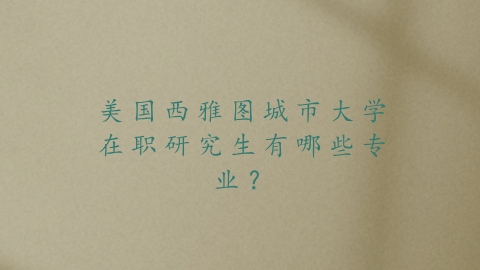 美国西雅图城市大学
在职研究生有哪些专
业？